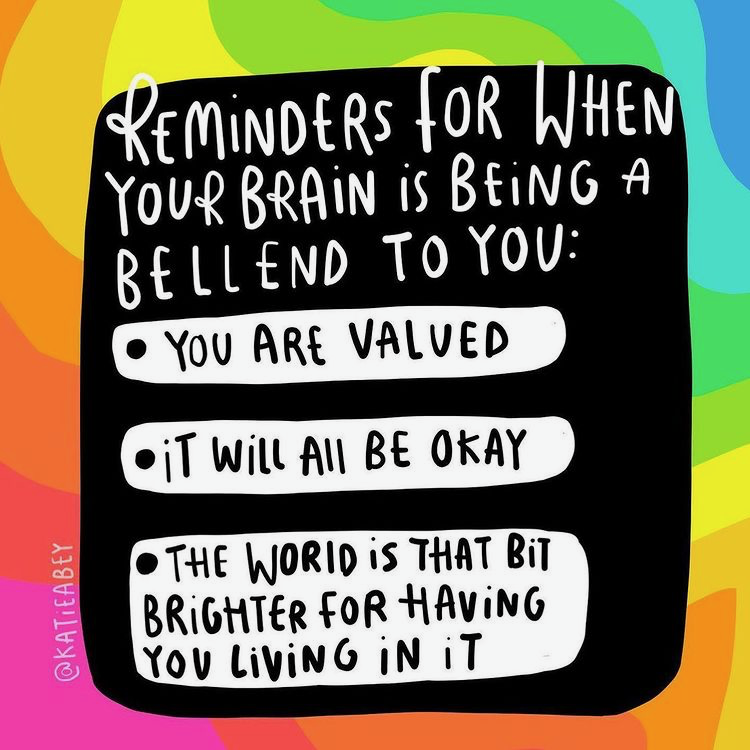 REMINDERS FOR WHEN
YOUR BRAIN iS BEiNG A
BELLEND TO YOU:
• YOU ARE VALUED
• iT WiLL All BE OKAY
• THE WORLD iS THAT BiT
BRiGHTER FOR HAViNG
YOU LiViNG iN iT
@KATiEABEY